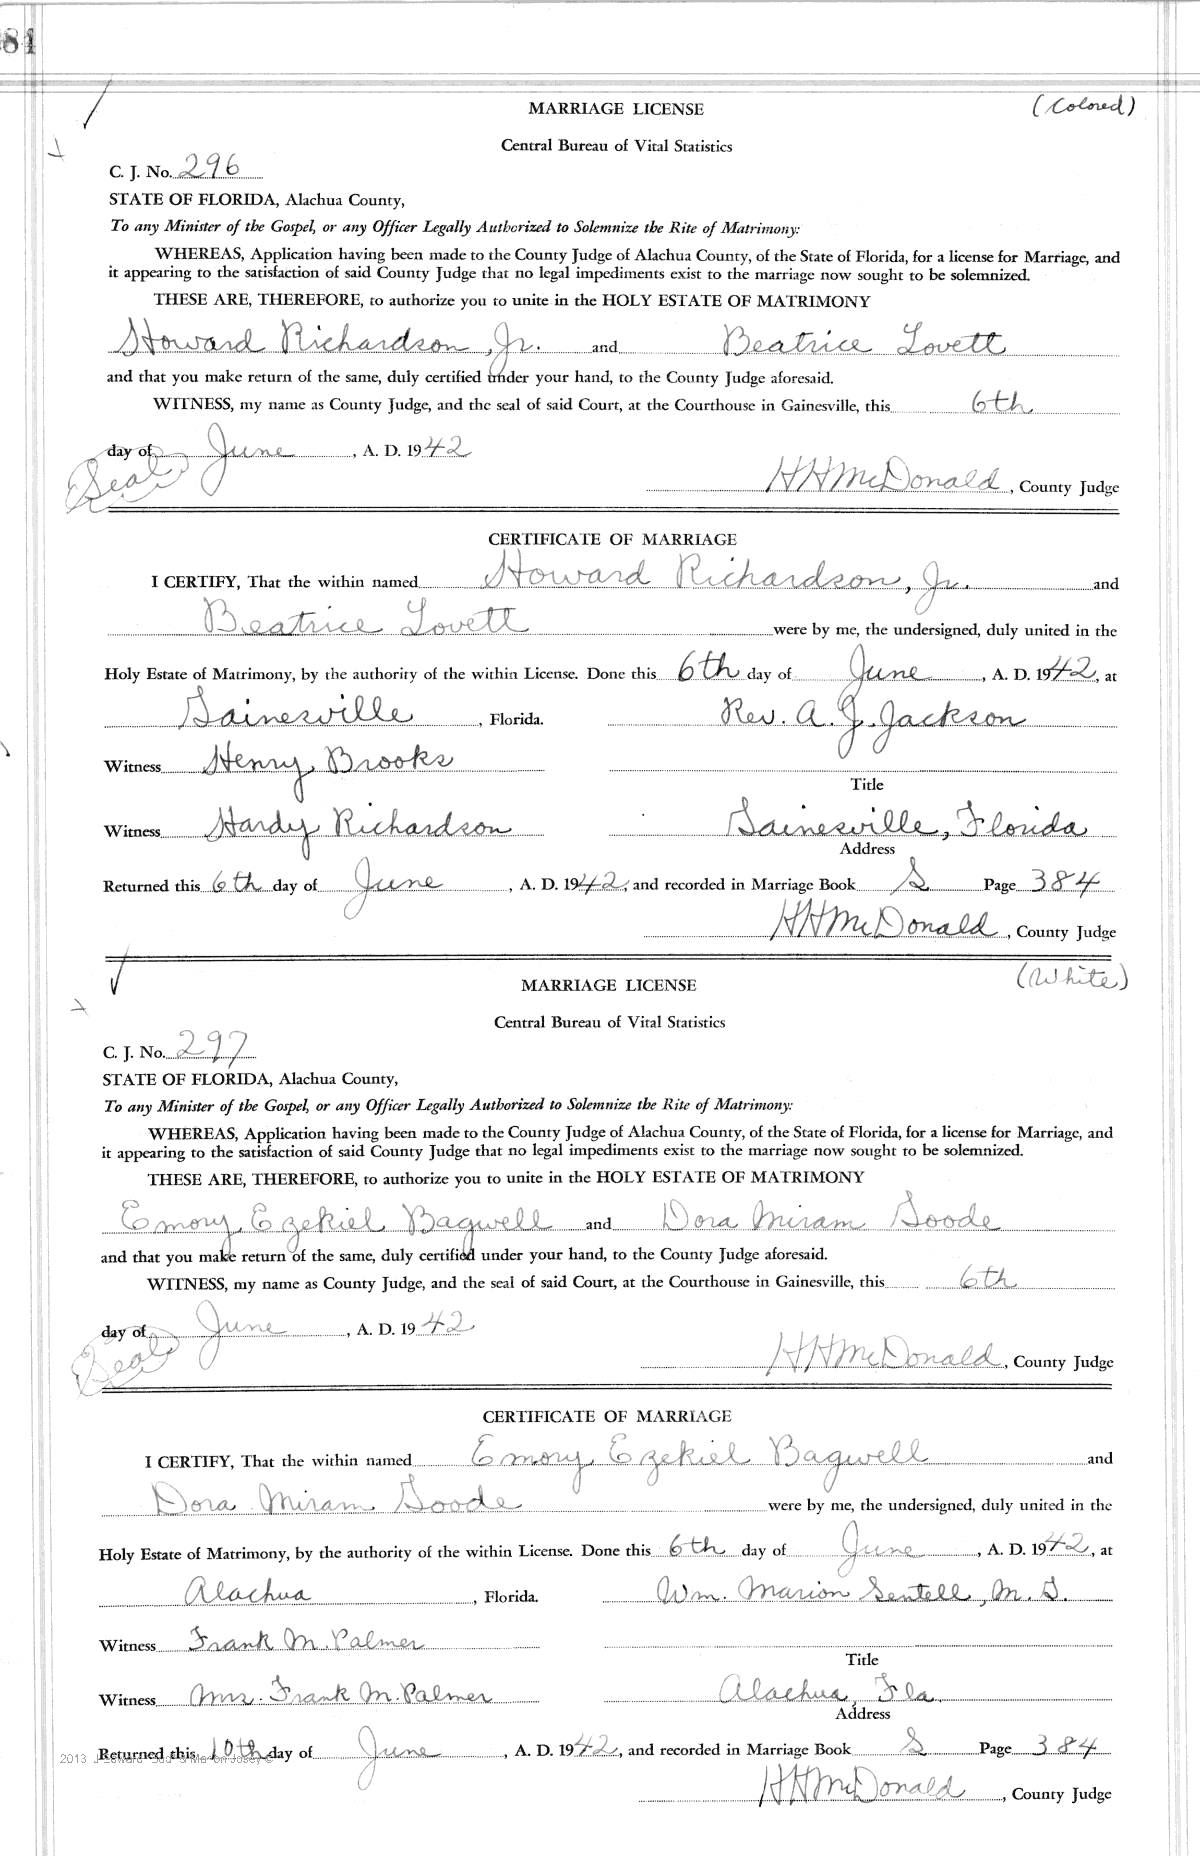 84
MARRIAGE LICENSE (Colored)
Central Bureau of Vital Statistics
C. J. No. 296
STATE OF FLORIDA, Alachua County,
To any Minister of the Gospel, or any Officer Legally Authorized to Solemnize the Rite of Matrimony:
WHEREAS, Application having been made to the County Judge of Alachua County, of the State of Florida, for a license for Marriage, and
it appearing to the satisfaction of said County Judge that no legal impediments exist to the marriage now sought to be solemnized.
THESE ARE, THEREFORE, to authorize you to unite in the HOLY ESTATE OF MATRIMONY
Howard Richardson, Jr. and Beatrice Lovett
and that you make return of the same, duly certified under your hand, to the County Judge aforesaid.
WITNESS, my name as County Judge, and the seal of said Court, at the Courthouse in Gainesville, this 6th
day of June, A. D. 1942
Seal
HHMcDonald, County Judge
CERTIFICATE OF MARRIAGE
I CERTIFY, That the within named Howard Richardson, Jr. and
Beatrice Lovett were by me, the undersigned, duly united in the
Holy Estate of Matrimony, by the authority of the within License. Done this 6th day of June, A. D. 1942, at
Gainesville, Florida. Rev. A. J. Jackson
Witness Henry Brooks
Title
Witness Hardy Richardson Gainesville, Florida
Address
Returned this 6th day of June, A. D. 1942, and recorded in Marriage Book S Page 384
HHMcDonald, County Judge
MARRIAGE LICENSE (White)
Central Bureau of Vital Statistics
C. J. No. 297
STATE OF FLORIDA, Alachua County,
To any Minister of the Gospel, or any Officer Legally Authorized to Solemnize the Rite of Matrimony:
WHEREAS, Application having been made to the County Judge of Alachua County, of the State of Florida, for a license for Marriage, and
it appearing to the satisfaction of said County Judge that no legal impediments exist to the marriage now sought to be solemnized.
THESE ARE, THEREFORE, to authorize you to unite in the HOLY ESTATE OF MATRIMONY
Emory Ezekiel Bagwell and Dora Miram Goode
and that you make return of the same, duly certified under your hand, to the County Judge aforesaid.
WITNESS, my name as County Judge, and the seal of said Court, at the Courthouse in Gainesville, this 6th
day of June, A. D. 1942
Seal
HHMcDonald, County Judge
CERTIFICATE OF MARRIAGE
I CERTIFY, That the within named Emory Ezekiel Bagwell and
Dora Miram Goode were by me, the undersigned, duly united in the
Holy Estate of Matrimony, by the authority of the within License. Done this 6th day of June, A. D. 1942, at
Alachua, Florida. Wm. Marion Sentell, M. G.
Witness Frank M. Palmer
Title
Witness Mrs. Frank M. Palmer Alachua, Fla.
Address
Returned this 10th day of June, A. D. 1942, and recorded in Marriage Book S Page 384
2013
HHMcDonald, County Judge